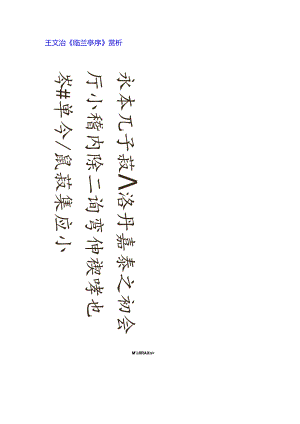 王文治《临兰亭序》赏析
永本兀子菽/\洛丹嘉泰之初会
厅小稽内除二询弯伸禊哮也
岑#单今/鼠菽集应小